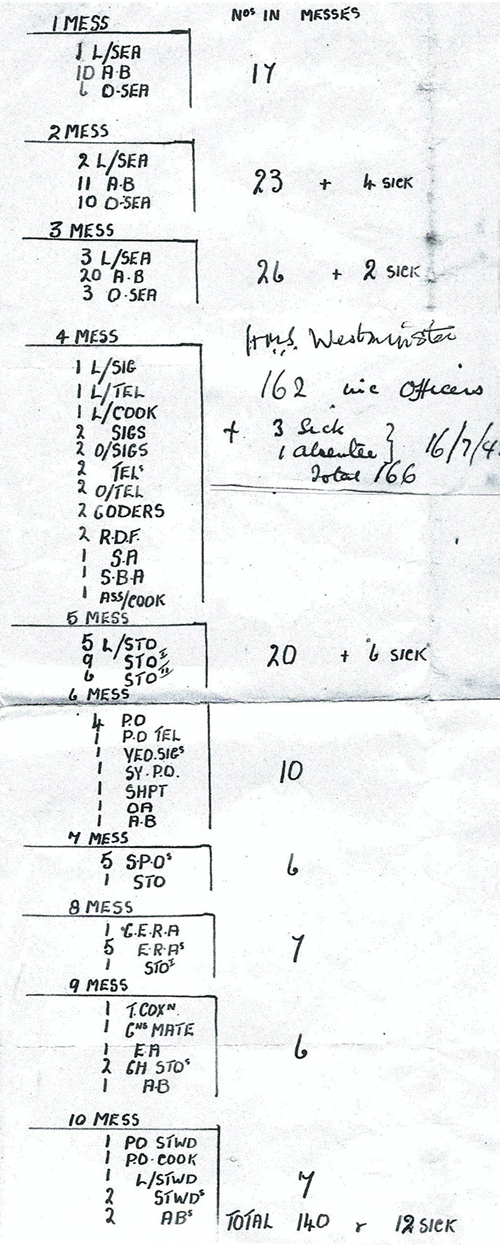 1 MESS
Nos IN MESSES
1 L/SEA
10 A·B
6 O·SEA
17
2 MESS
2 L/SEA
11 A·B
10 O·SEA
23 + 4 SICK
3 MESS
3 L/SEA
20 A·B
3 O·SEA
26 + 2 SICK
4 MESS
H.M.S. Westminster
162 inc Officers
+ 3 Sick
1 absentee } 16/7/4
Total 166
1 L/SIG
1 L/TEL
1 L/COOK
2 SIGS
2 O/SIGS
2 TELs
2 O/TEL
2 CODERS
2 R.D.F.
1 S.A
1 S.B.A
1 ASS/COOK
5 MESS
5 L/STO
9 STO I
6 STO II
20 + 6 SICK
6 MESS
4 P.O
1 P.O TEL
1 YEO.SIGs
1 SY.P.O.
1 SHPT
1 OA
1 A·B
10
7 MESS
5 S·P·Os
1 STO
6
8 MESS
1 C.E.R.A
5 E·R·As
1 STO I
7
9 MESS
1 T.COXN.
1 GNS MATE
1 EA
2 CH STOs
1 A·B
6
10 MESS
1 PO STWD
1 P.O·COOK
1 L/STWD
2 STWDs
2 ABs
7
TOTAL 140 & 12 SICK